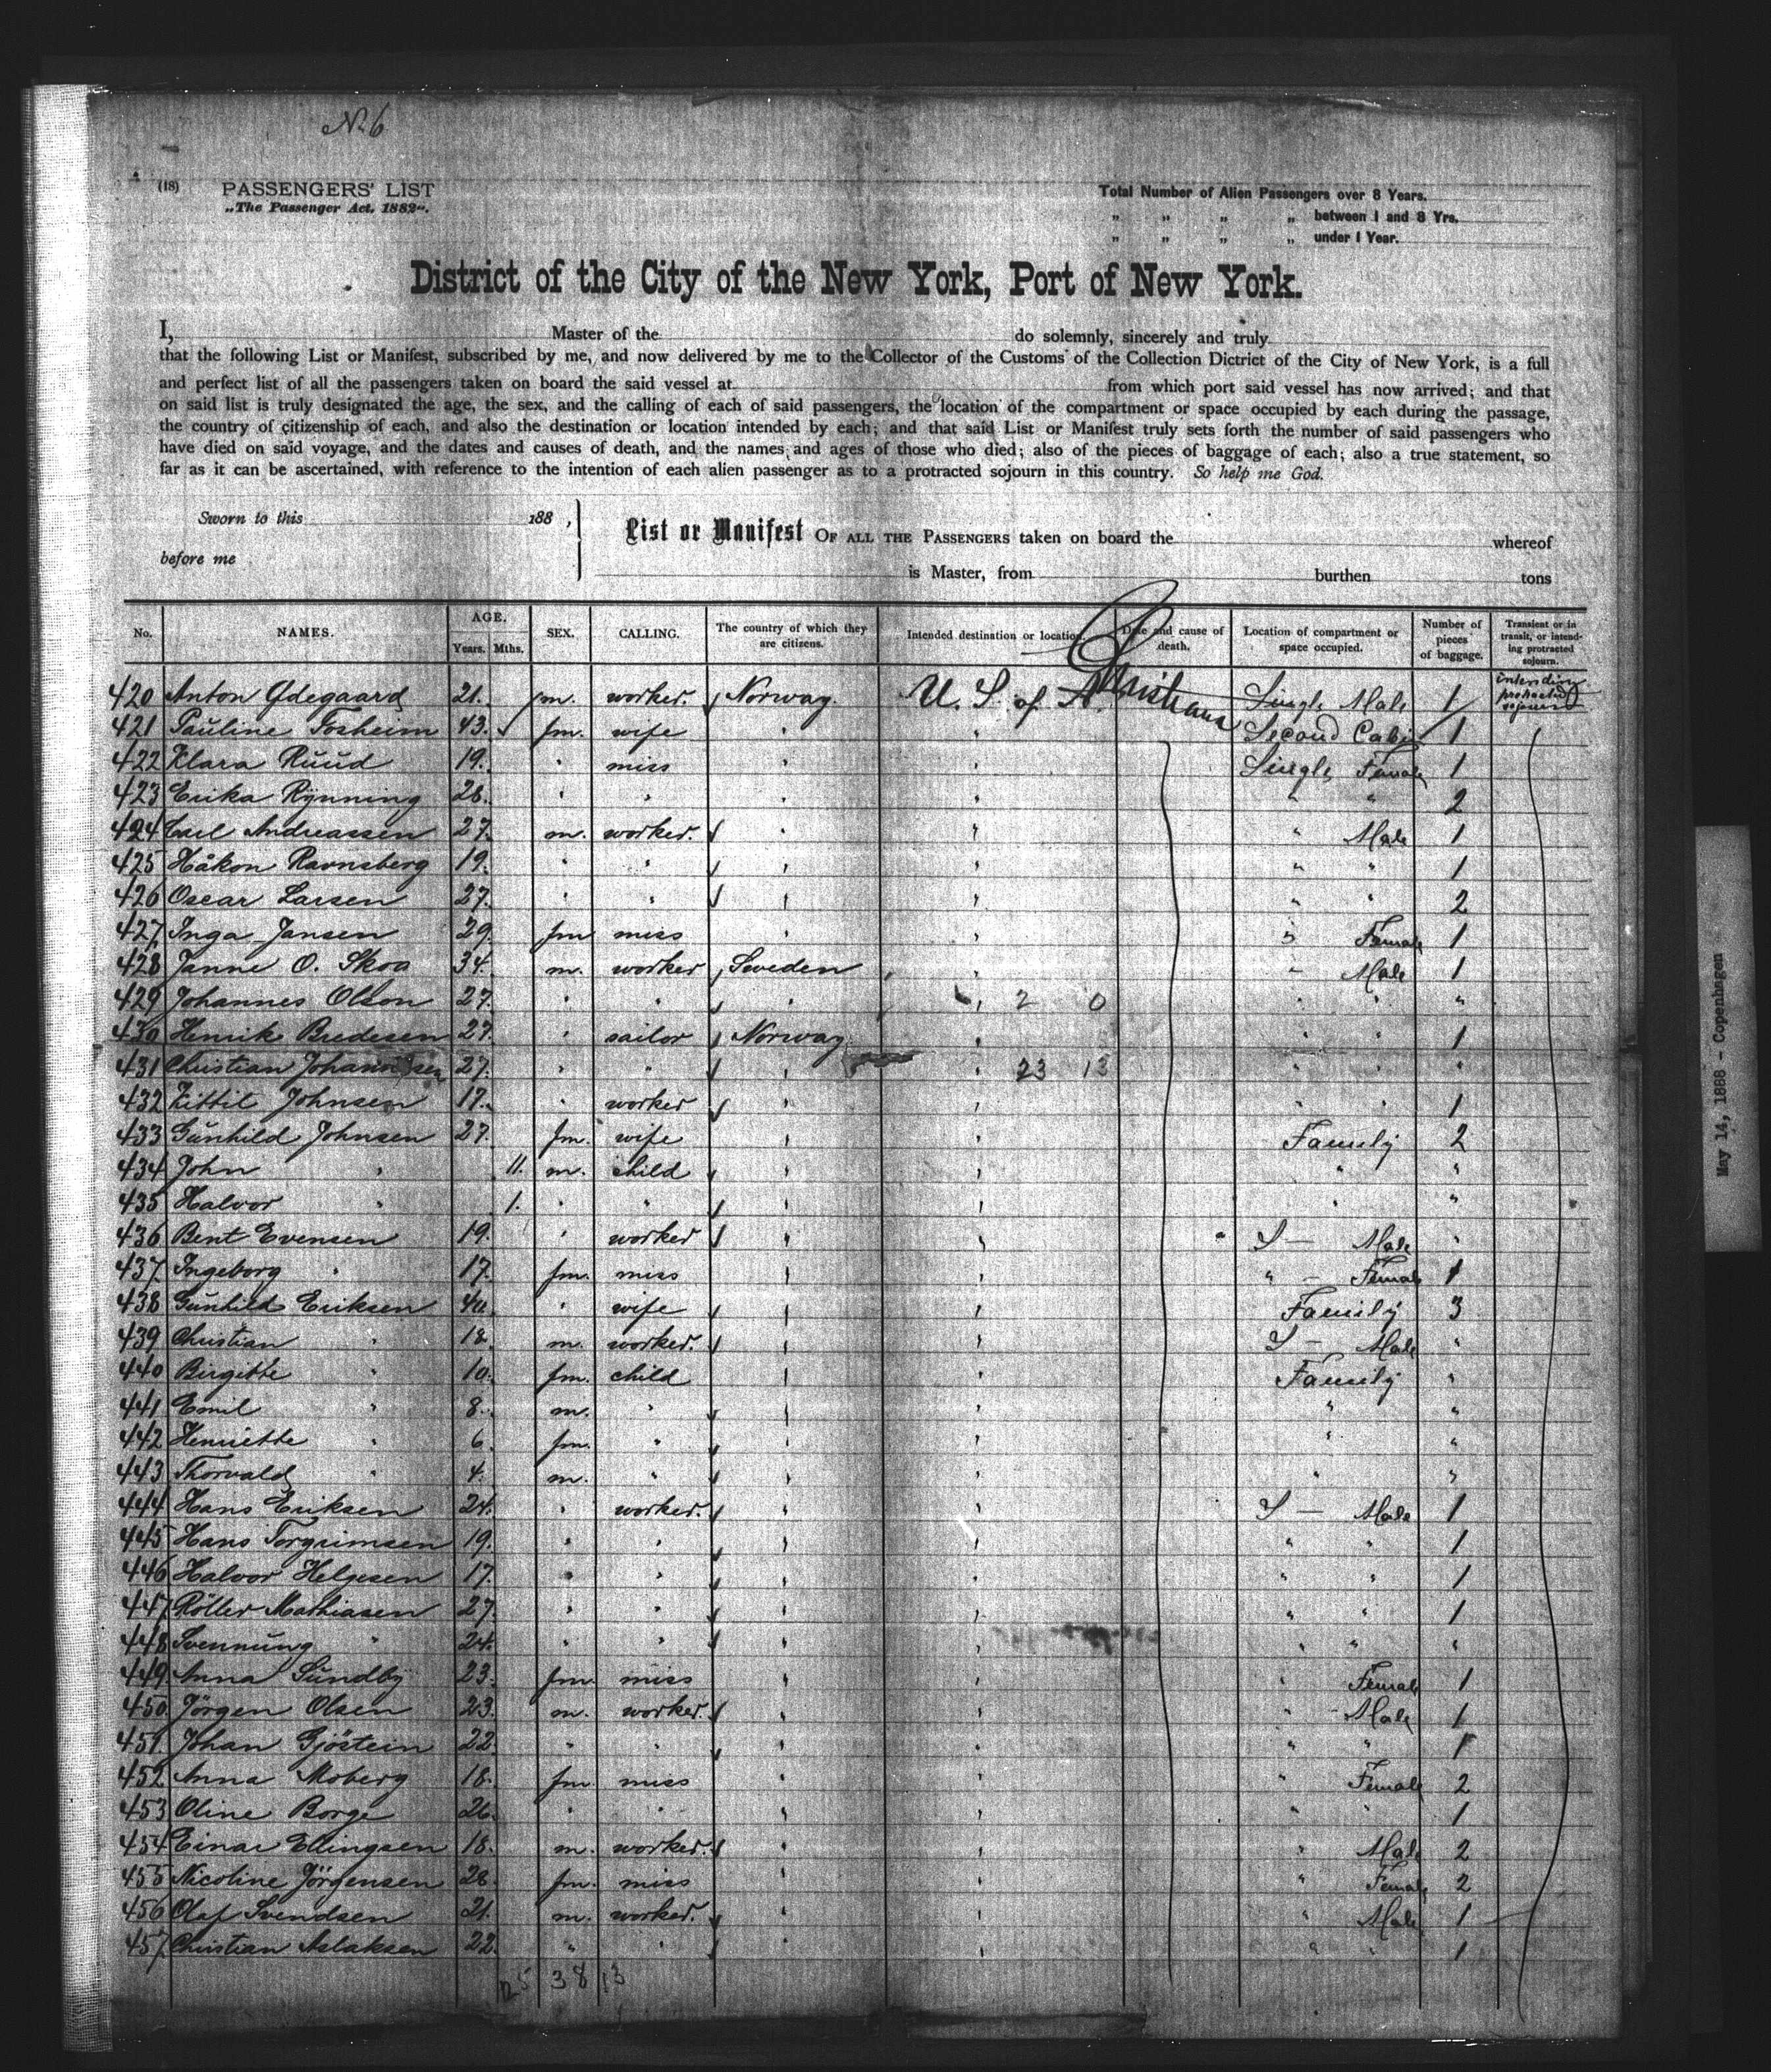 No. 6
(18) PASSENGERS' LIST
„The Passenger Act, 1882".
Total Number of Alien Passengers over 8 Years.
„ „ „ „ between 1 and 8 Yrs.
„ „ „ „ under 1 Year.
District of the City of the New York, Port of New York.
I, Master of the do solemnly, sincerely and truly
that the following List or Manifest, subscribed by me, and now delivered by me to the Collector of the Customs of the Collection District of the City of New York, is a full
and perfect list of all the passengers taken on board the said vessel at from which port said vessel has now arrived; and that
on said list is truly designated the age, the sex, and the calling of each of said passengers, the location of the compartment or space occupied by each during the passage,
the country of citizenship of each, and also the destination or location intended by each; and that said List or Manifest truly sets forth the number of said passengers who
have died on said voyage, and the dates and causes of death, and the names and ages of those who died; also of the pieces of baggage of each; also a true statement, so
far as it can be ascertained, with reference to the intention of each alien passenger as to a protracted sojourn in this country. So help me God.
Sworn to this 188 ,
before me
List or Manifest OF ALL THE PASSENGERS taken on board the whereof
is Master, from burthen tons
No. NAMES. AGE. Years. Mths. SEX. CALLING. The country of which they are citizens. Intended destination or location. Date and cause of death. Location of compartment or space occupied. Number of pieces of baggage. Transient or in transit, or intending protracted sojourn.
Christiana
420 Anton Ødegaard 21. m. worker. Norway. U. S. of A. Single Male 1 intending protracted sojourn
421 Pauline Fosheim 43. fm. wife " " Second Cabin 1
422 Klara Ruud 19. " miss " " Single Female 1
423 Erika Rynning 28. " " " " " " 2
424 Carl Andreassen 27. m. worker. " " " Male 1
425 Håkon Ravnsberg 19. " " " " " " 1
426 Oscar Larsen 27. " " " " " " 2
427 Inga Jansen 29. fm miss " " " Female 1
428 Janne O. Skoa 34. m. worker Sweden " " Male 1
429 Johannes Olson 27. " " " " 2 0 " " "
430 Henrik Bredesen 27. " sailor Norway " " " 1
431 Christian Johannesen 27. " " " " 23 13 " " "
432 Kittil Johnsen 17. " worker " " " " 1
433 Gunhild Johnsen 27. fm. wife " " Family 2
434 John " 11. m. child " " " "
435 Halvor " 1. " " " " " "
436 Bent Evensen 19. " worker " " S — Male "
437 Ingeborg " 17. fm. miss " " " — Female 1
438 Gunhild Eriksen 40. " wife " " Family 3
439 Christian " 18. m. worker. " " S — Male "
440 Birgitte " 10. fm. child " " Family "
441 Emil " 8. m. " " " " "
442 Henriette " 6. fm. " " " " "
443 Thorvald " 4. m. " " " " "
444 Hans Eriksen 24. " worker. " " S — Male 1
445 Hans Torgrimsen 19. " " " " " " 1
446 Halvor Helgesen 17. " " " " " " 1
447 Röller Mathiasen 27. " " " " " " 1
448 Svennung " 24. " " " " " " "
449 Anna Sundby 23. fm. miss " " " Female 1
450 Jörgen Olsen 23. m. worker. " " " Male 1
451 Johan Gjöstein 22. " " " " " " 1
452 Anna Moberg 18. fm. miss " " " Female 2
453 Oline Borge 26. " " " " " " 1
454 Einar Ellingsen 18. m. worker. " " " Male 2
455 Nicoline Jörgensen 28. fm. miss " " " Female 2
456 Olaf Svendsen 21. m. worker. " " " Male 1
457 Christian Aslaksen 22. " " " " " " 1
25 38 13
May 14, 1888 - Copenhagen